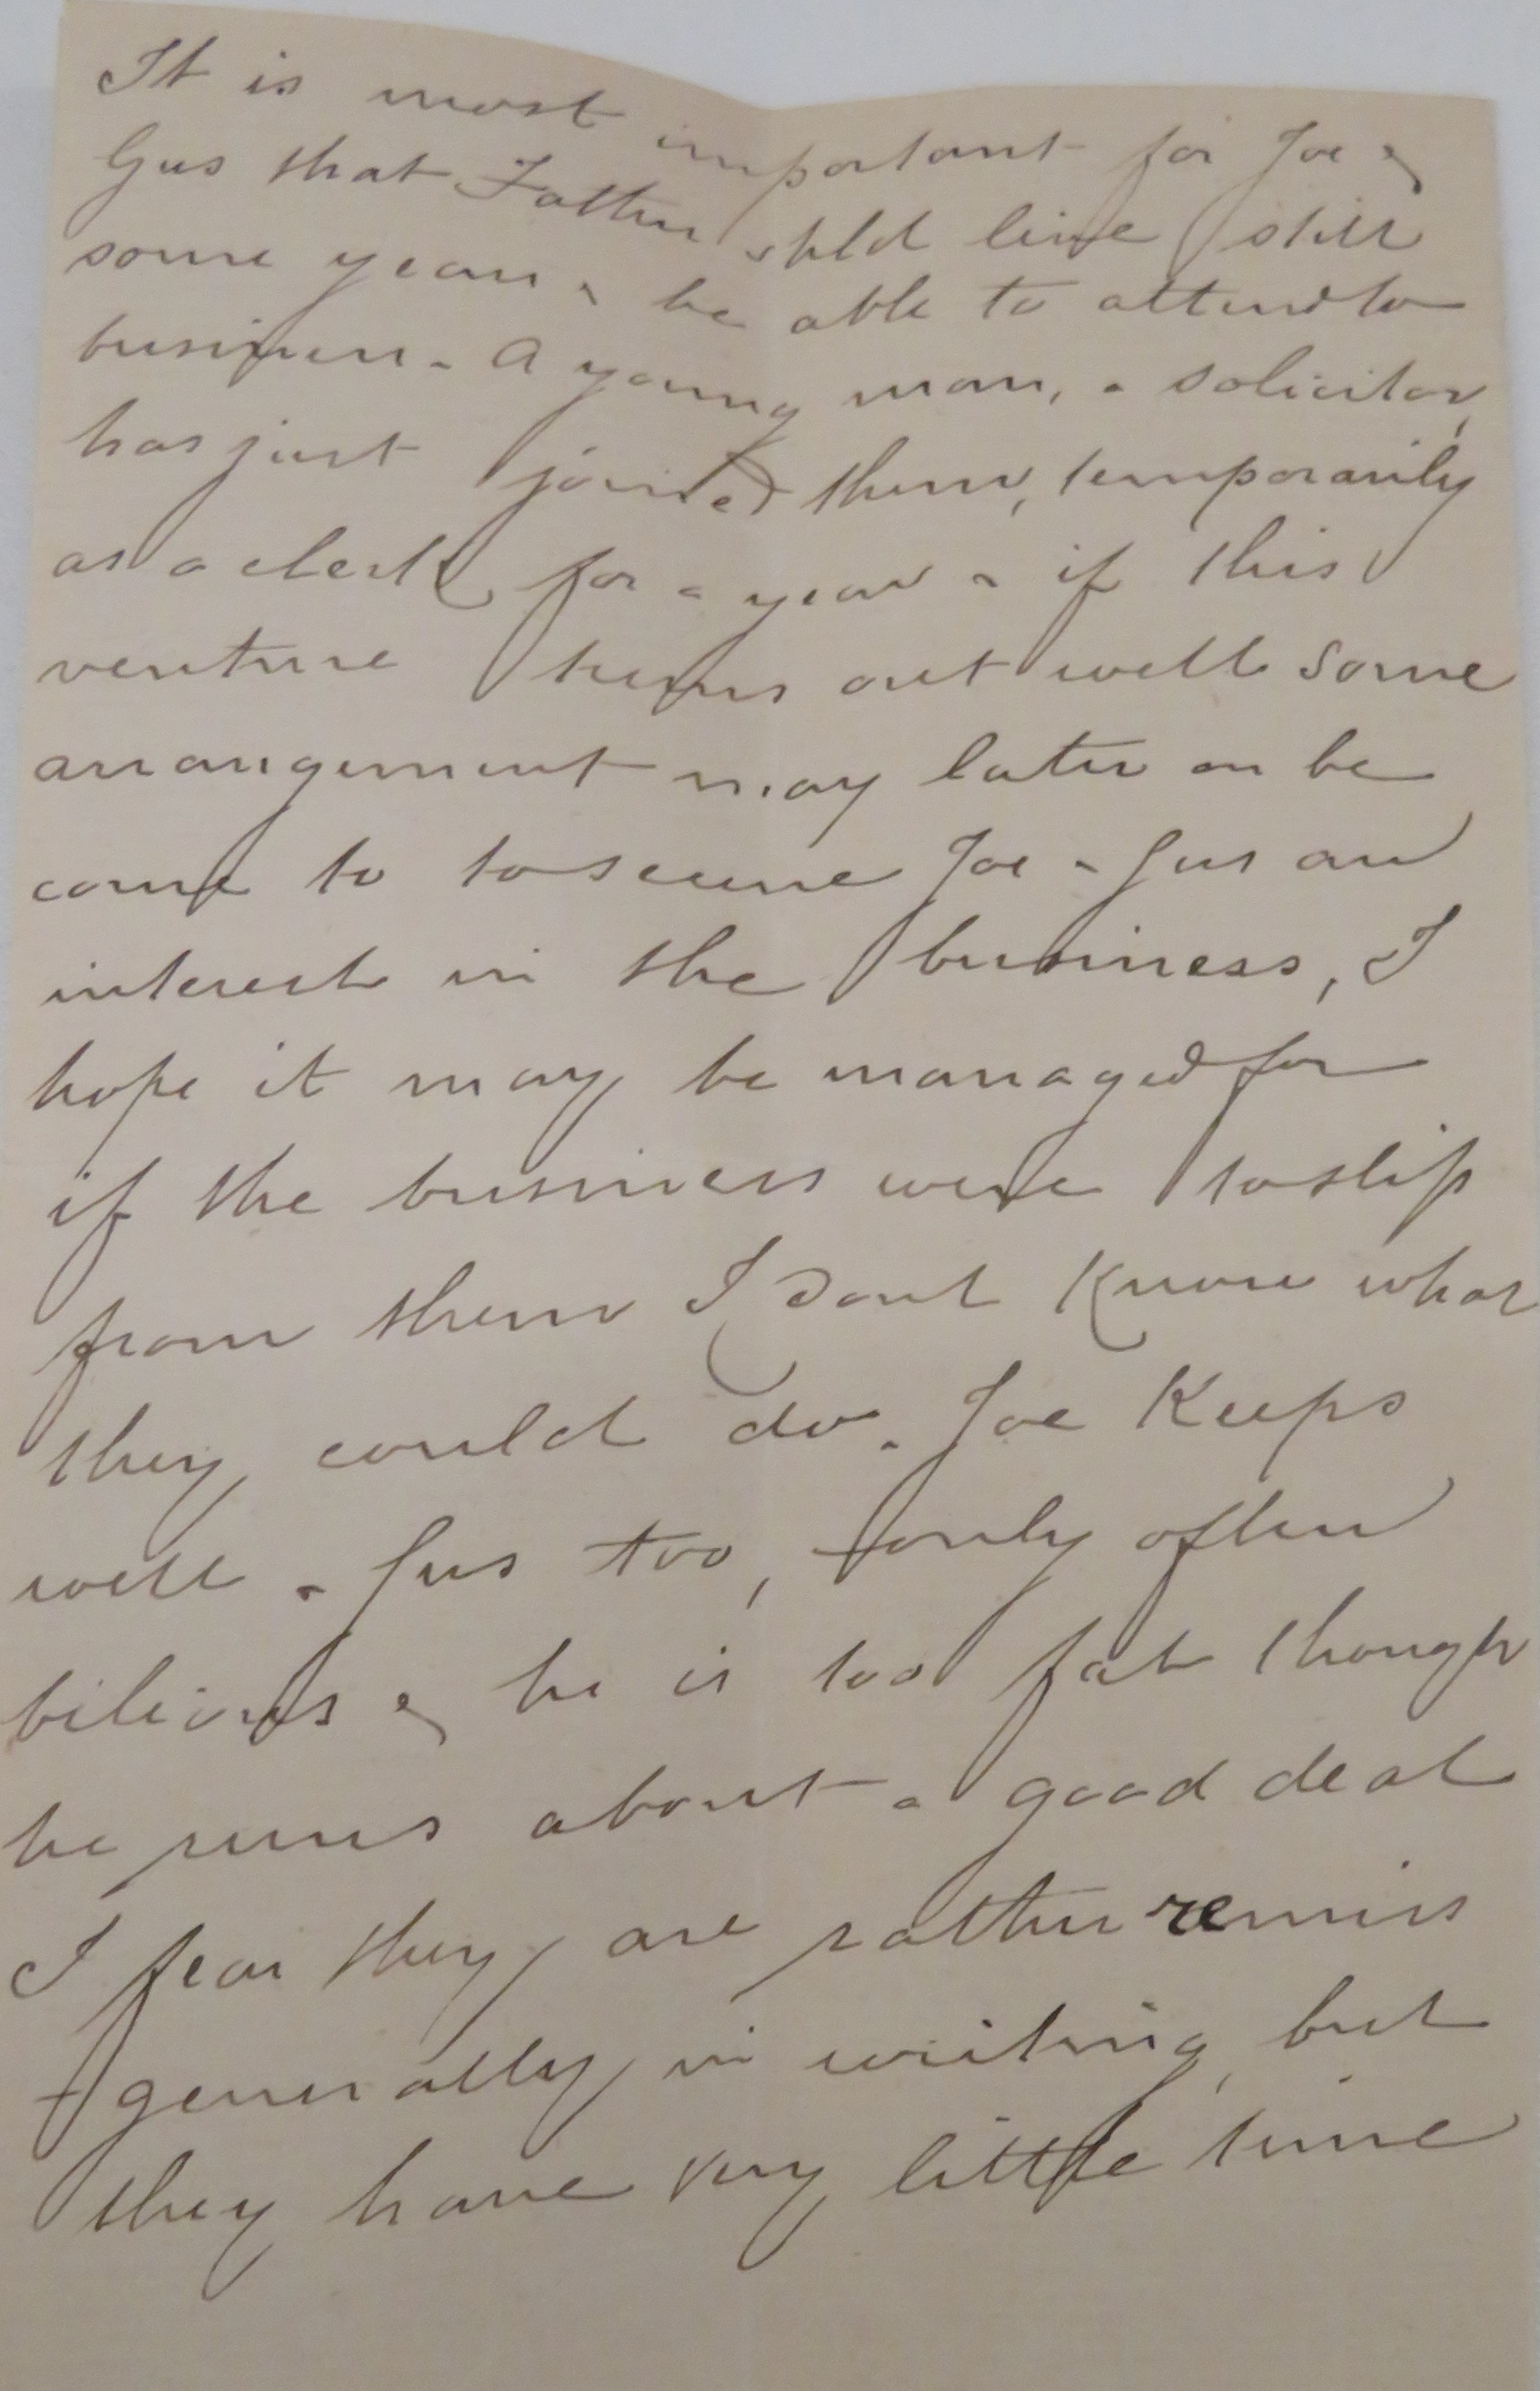 It is most important for Joe &
Gus that Father shld live still
some years & be able to attend to
business. A young man, a solicitor,
has just joined them, temporarily
as a clerk for a year & if this
venture turns out well some
arrangement may later on be
come to to secure Joe & Gus an
interest in the business, I
hope it may be managed for
if the business were to slip
from them I dont know what
they could do. Joe keeps
well & Gus too, only often
bilious & he is too fat though
he runs about a good deal
I fear they are rather remiss
generally in writing, but
they have very little time